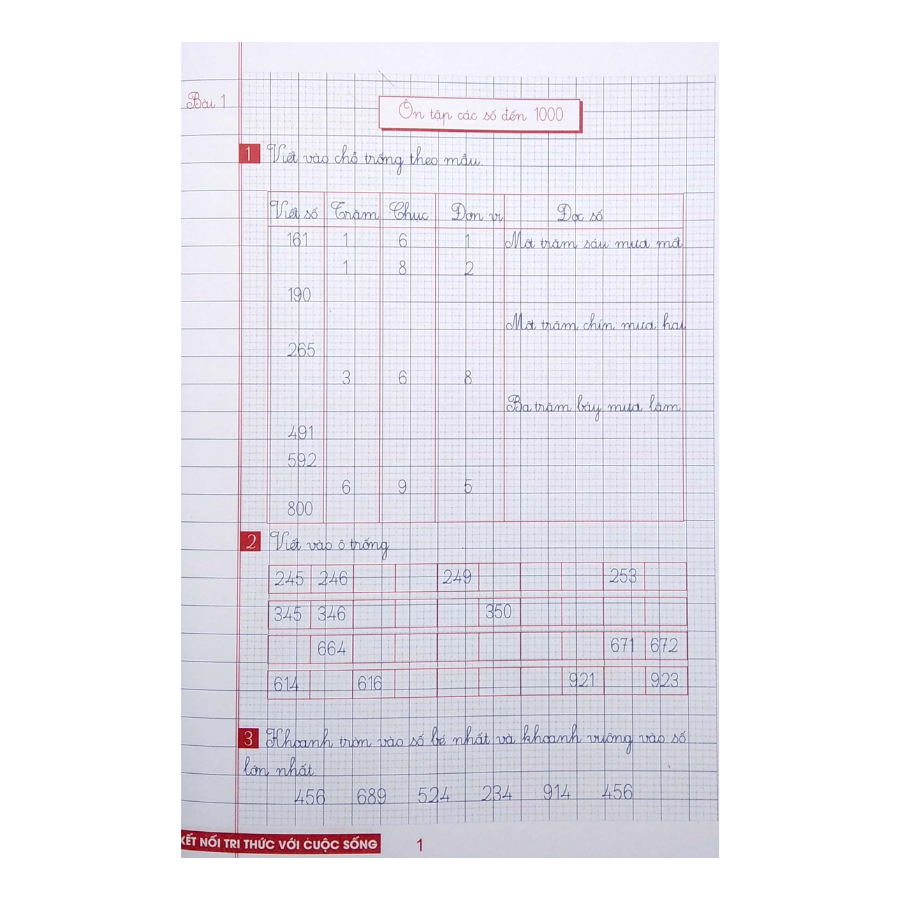 Bài 1
Ôn tập các số đến 1000
1 Viết vào chỗ trống theo mẫu.
Viết số Trăm Chục Đơn vị Đọc số
161 1 6 1 Một trăm sáu mươi mốt
1 8 2
190
Một trăm chín mươi hai
265
3 6 8
Ba trăm bảy mươi lăm
491
592
6 9 5
800
2 Viết vào ô trống
245 246 249 253
345 346 350
664 671 672
614 616 921 923
3 Khoanh tròn vào số bé nhất và khoanh vuông vào số
lớn nhất
456 689 524 234 914 456
KẾT NỐI TRI THỨC VỚI CUỘC SỐNG 1